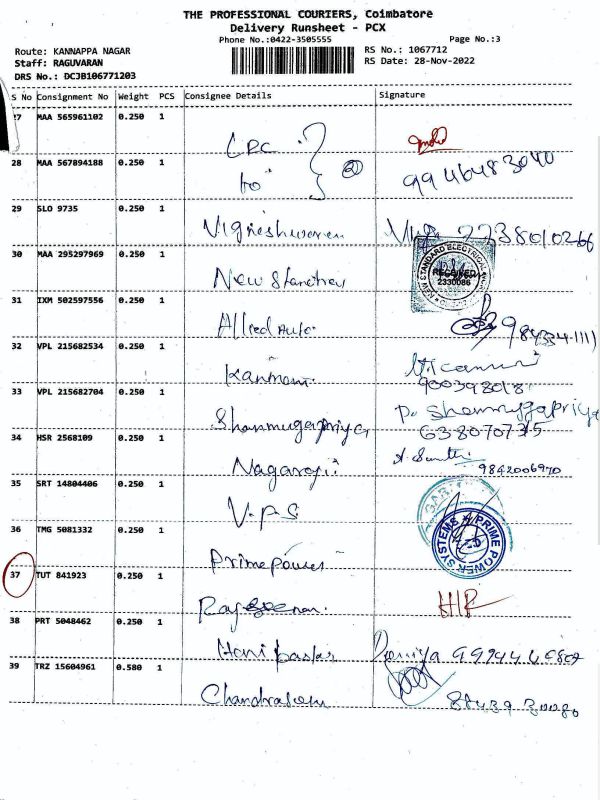 THE PROFESSIONAL COURIERS, Coimbatore
Delivery Runsheet - PCX
Phone No.:0422-3505555 Page No.:3
Route: KANNAPPA NAGAR RS No.: 1067712
Staff: RAGUVARAN RS Date: 28-Nov-2022
DRS No.: DCJB106771203
S No Consignment No Weight PCS Consignee Details Signature
27 MAA 565961102 0.250 1
CPC
28 MAA 567894188 0.250 1
to 20 9946483040
29 SLO 9735 0.250 1
Vigneshwaren
30 MAA 295297969 0.250 1
New Standred NEW STANDARD ELECTRICAL RECEIVED 2330086
31 IXM 502597556 0.250 1
Allied Auto
32 VPL 215682534 0.250 1
Kanmani
33 VPL 215682704 0.250 1
Shanmugapriya P. Shanmugapriya
6380707315
34 HSR 2568109 0.250 1
Nagaraji 9842006970
35 SRT 14804406 0.250 1
V.P.S
36 TMG 5081332 0.250 1
Prime power PRIME POWER SYSTEMS
37 TUT 841923 0.250 1
H/R
38 PRT 5048462 0.250 1
Hari baskar
39 TRZ 15604961 0.580 1
Chandrasen 88439 30080